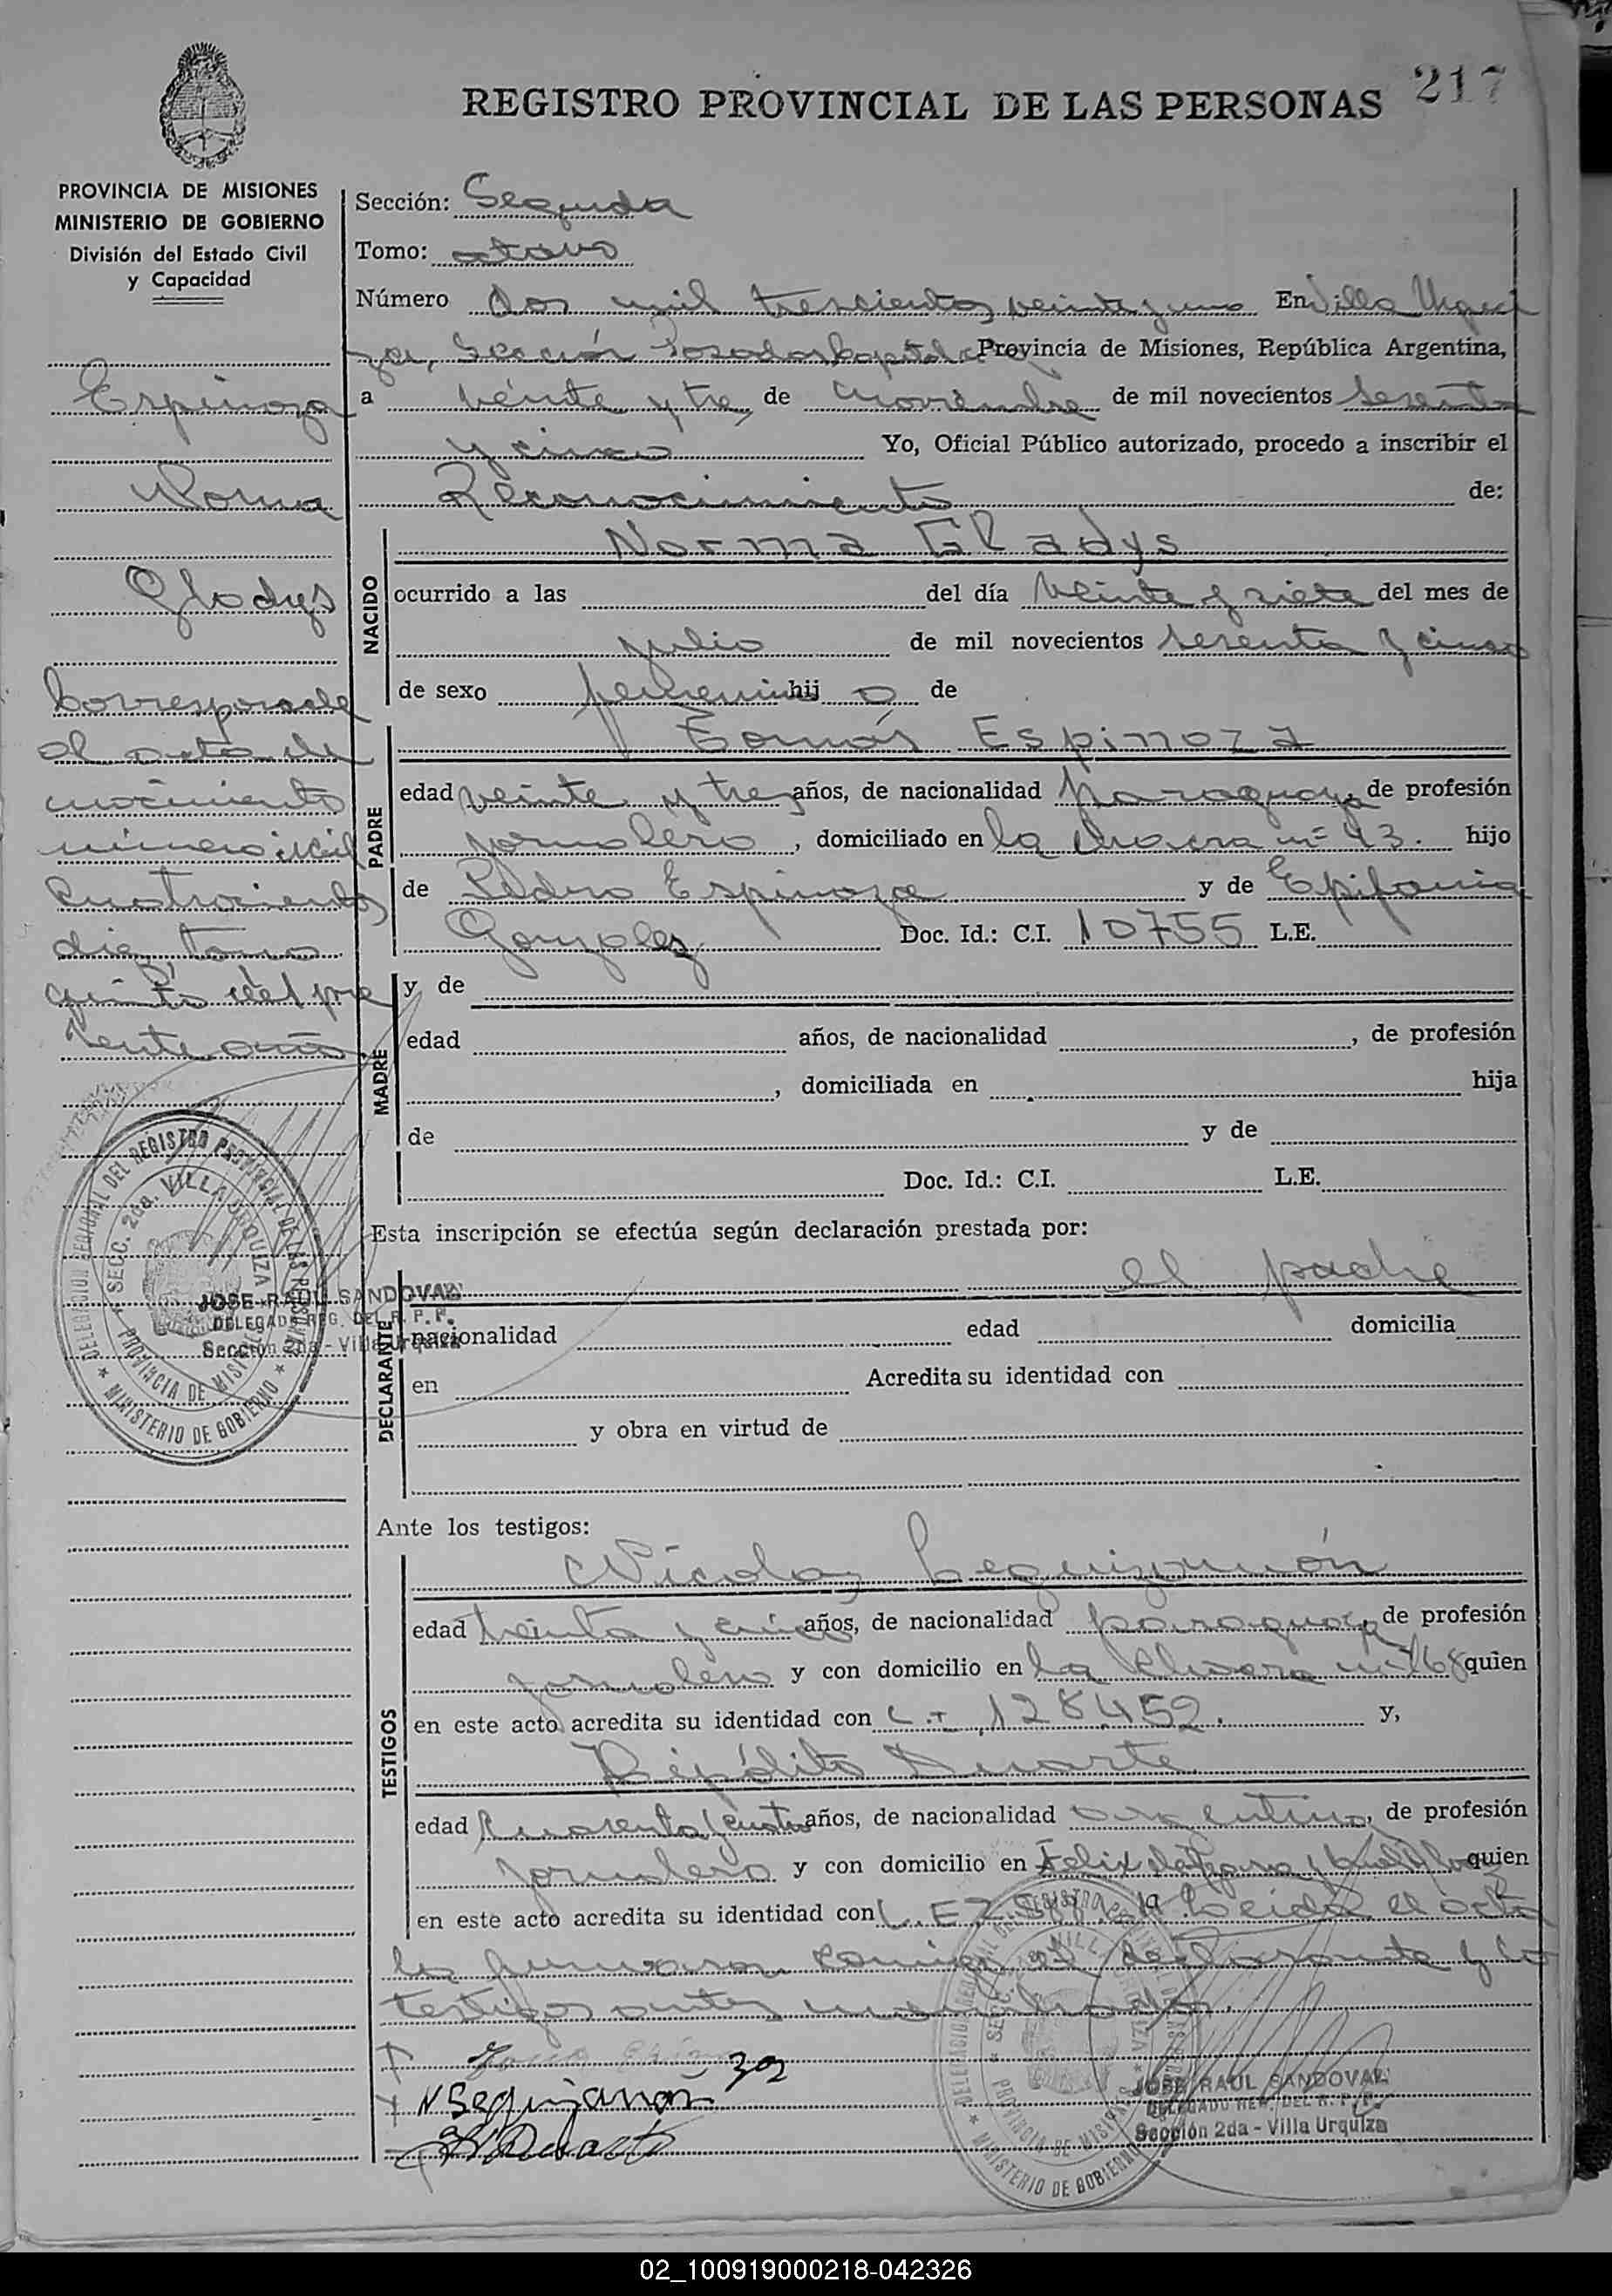 217
REGISTRO PROVINCIAL DE LAS PERSONAS
PROVINCIA DE MISIONES
MINISTERIO DE GOBIERNO
División del Estado Civil
y Capacidad
Espinoza
Norma
Gladys
Corresponde
al acta de
nacimiento
número mil
cuatrocientos
diez, tomo
quinto del pre
sente año
DELEGACION REGIONAL DEL REGISTRO PROVINCIAL DE LAS PERSONAS
SECC. 2da. VILLA URQUIZA
PROVINCIA DE MISIONES
* MINISTERIO DE GOBIERNO *
JOSE RAUL SANDOVAL
DELEGADO REG. DEL R. P. P.
Sección 2da - Villa Urquiza
Sección: Segunda
Tomo: octavo
Número Dos mil trescientos veinte y uno En Villa Urqui
za, Sección Posadas Capital Provincia de Misiones, República Argentina,
a veinte y tres de noviembre de mil novecientos sesenta
y cinco Yo, Oficial Público autorizado, procedo a inscribir el
Reconocimiento de:
NACIDO
Norma Gladys
ocurrido a las del día veinte y siete del mes de
julio de mil novecientos sesenta y cinco
de sexo femenino hij a de
PADRE
Tomás Espinoza
edad veinte y tres años, de nacionalidad paraguaya, de profesión
jornalero, domiciliado en la chacra nº 43. hijo
de Pedro Espinoza y de Epifania
Gonzalez Doc. Id.: C.I. 10755 L.E.
MADRE
y de
edad años, de nacionalidad , de profesión
, domiciliada en hija
de y de
Doc. Id.: C.I. L.E.
Esta inscripción se efectúa según declaración prestada por:
DECLARANTE
el padre
nacionalidad edad domicilia
en Acredita su identidad con
y obra en virtud de
Ante los testigos:
TESTIGOS
Nicolas Leguizamón
edad treinta y cinco años, de nacionalidad paraguaya, de profesión
jornalero y con domicilio en la chacra nº 168 quien
en este acto acredita su identidad con C.I. 128452. y,
Hipólito Duarte
edad cuarenta y cuatro años, de nacionalidad argentina, de profesión
jornalero y con domicilio en Felix de Azara y quien
en este acto acredita su identidad con L.E. Leida el acta
la firmaron conmigo el declarante y los
testigos antes nombrados.
N Leguizamón
H Duarte
DELEGACION REGIONAL DEL REGISTRO PROVINCIAL DE LAS PERSONAS
* SECC. 2da. VILLA URQUIZA *
PROVINCIA DE MISIONES
* MINISTERIO DE GOBIERNO
JOSE RAUL SANDOVAL
DELEGADO REG. DEL R. P. P.
Sección 2da - Villa Urquiza
02_100919000218-042326